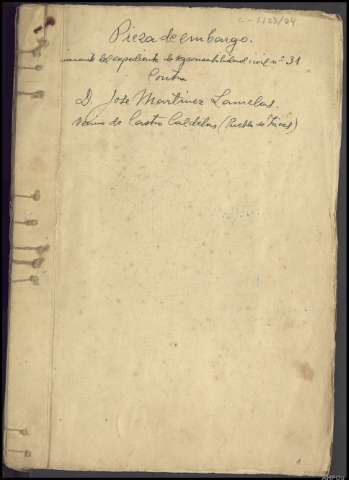 C-1123/24
Pieza de embargo.
del expediente de responsabilidad civil nº 31
Contra
D. Jose Martinez Lamelas.
vecino de Castro Caldelas (Puebla de Trives)
AHPOu